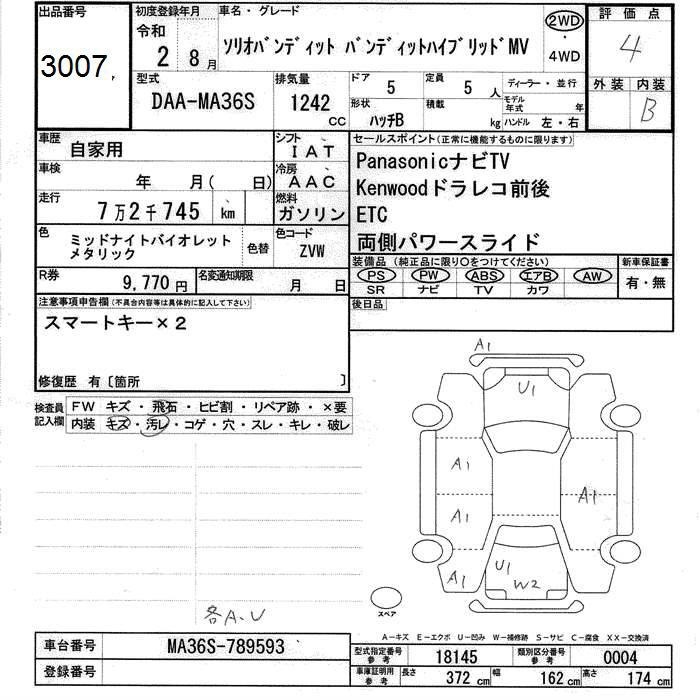 出品番号
3007,
初度登録年月
令和
2 8月
車名・グレード
ソリオバンディット バンディットハイブリッドMV
2WD
・
4WD
評価点
4
外装 内装
B
型式
DAA-MA36S
排気量
1242
CC
ドア
5
定員
5 人
形状
ハッチB
積載
kg
ディーラー・並行
モデル年式 年
ハンドル 左・右
車歴
自家用
シフト
IAT
車検
年 月( 日)
冷房
AAC
走行
7万2千745 km
燃料
ガソリン
色
ミッドナイトバイオレット
メタリック
色替
色コード
ZVW
R券
9,770円
名変通知期限
月 日
セールスポイント(正常に機能するものに限ります)
PanasonicナビTV
Kenwoodドラレコ前後
ETC
両側パワースライド
装備品(純正品に限り○をつけてください)
PS PW ABS エアB AW
SR ナビ TV カワ
新車保証書
有・無
後日品
注意事項申告欄(不具合内容等は具体的に記入して下さい)
スマートキー×2
修復歴 有〔箇所 〕
検査員
記入欄
FW キズ・飛石・ヒビ割・リペア跡・×要
内装 キズ・汚レ・コゲ・穴・スレ・キレ・破レ
各A.U
A1
U1
A1
A1
A1
A1
U1
W2
スペア
A-キズ E-エクボ U-凹み W-補修跡 S-サビ C-腐食 XX-交換済
車台番号
MA36S-789593
登録番号
型式指定番号
参考
18145
類別区分番号
参考
0004
車庫証明用
参考
長さ
372 cm
幅
162 cm
高さ
174 cm